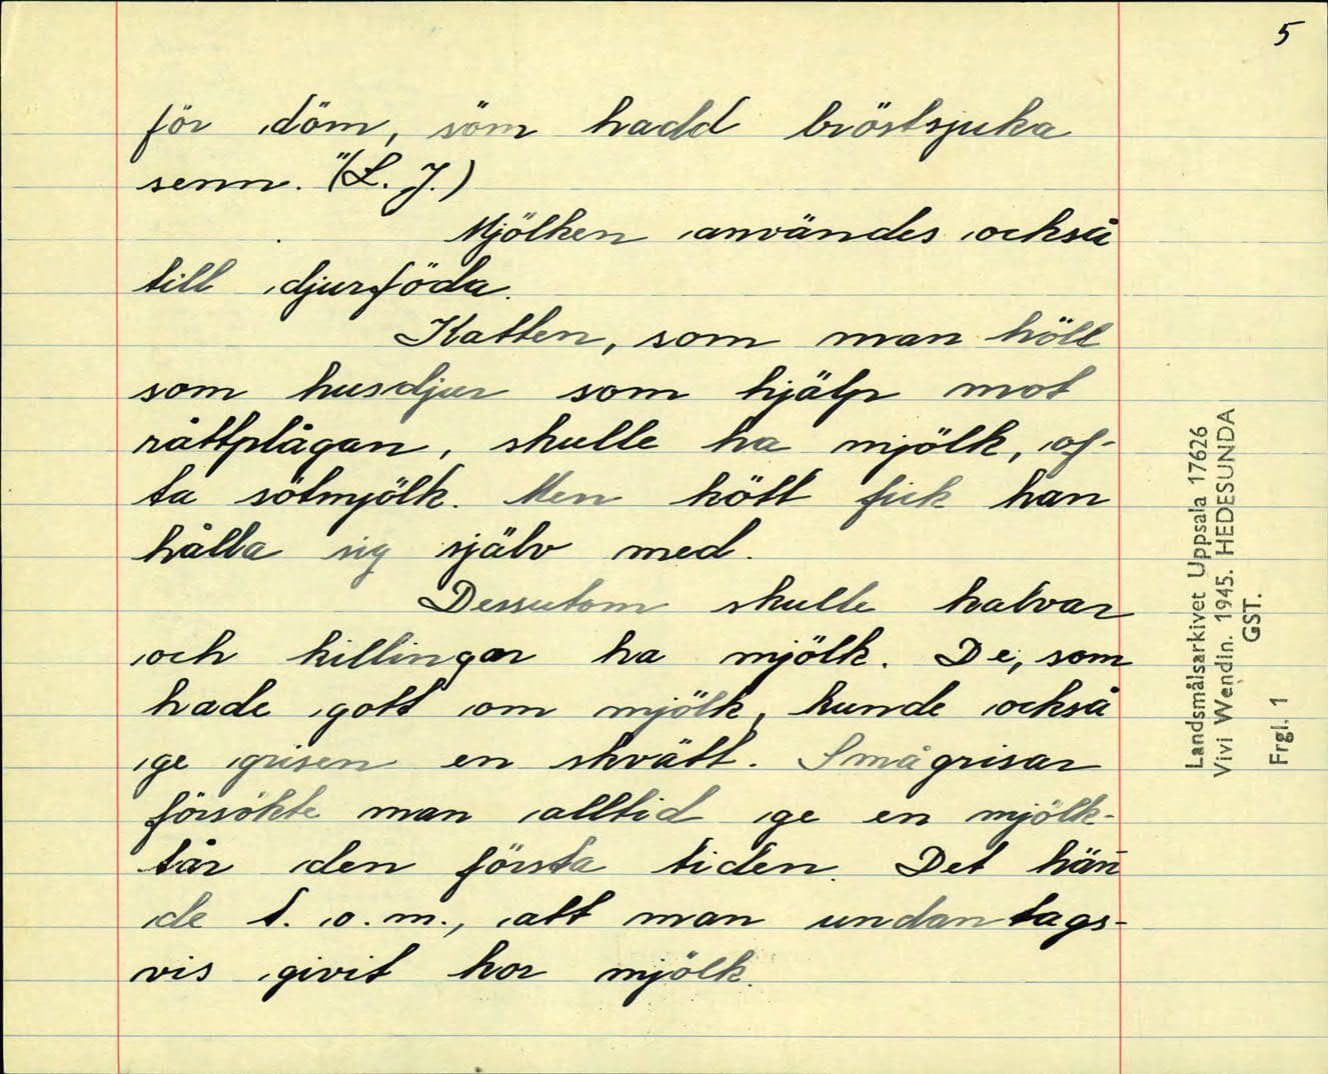 5
för döm, söm hadd bröstsjuka
senn." (L. J.)
Mjölken användes också
till djurföda.
Katten, som man höll
som husdjur som hjälp mot
råttplågan, skulle ha mjölk, of-
ta sötmjölk. Men kött fick han
hålla sig själv med.
Dessutom skulle kalvar
och killingar ha mjölk. De, som
hade gott om mjölk, kunde också
ge grisen en skvätt. Smågrisar
försökte man alltid ge en mjölk-
tår den första tiden. Det hän
de t. o. m., att man undantags-
vis givit kor mjölk.
Landsmålsarkivet Uppsala 17626
Vivi Wendin. 1945. HEDESUNDA
GST.
Frgl. 1